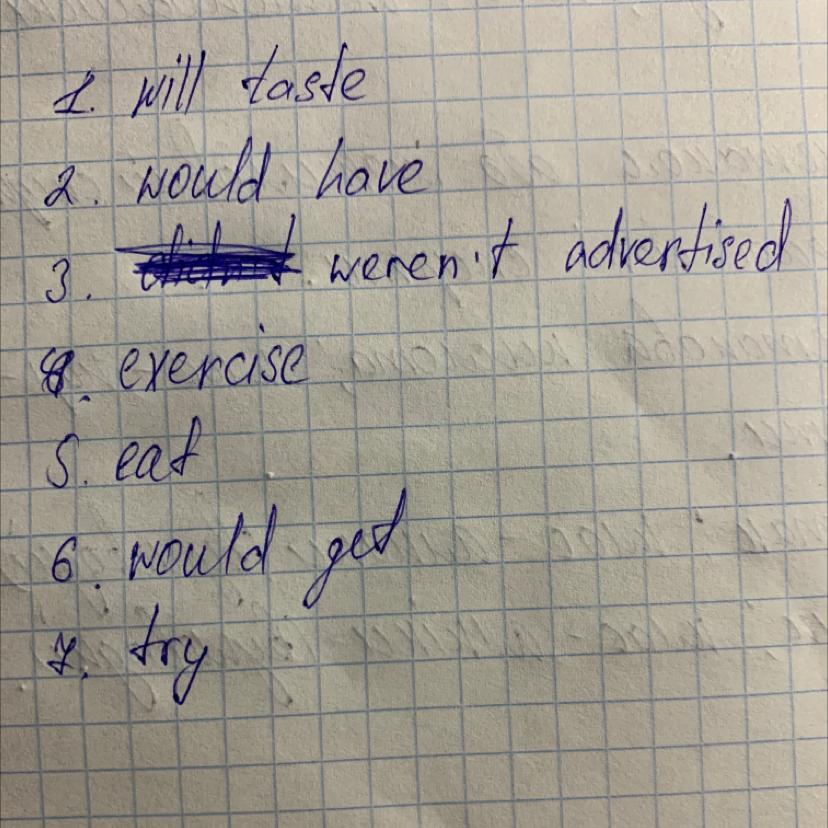 1. will taste
2. would have
3. weren't advertised
4. exercise
5. eat
6. would get
7. try